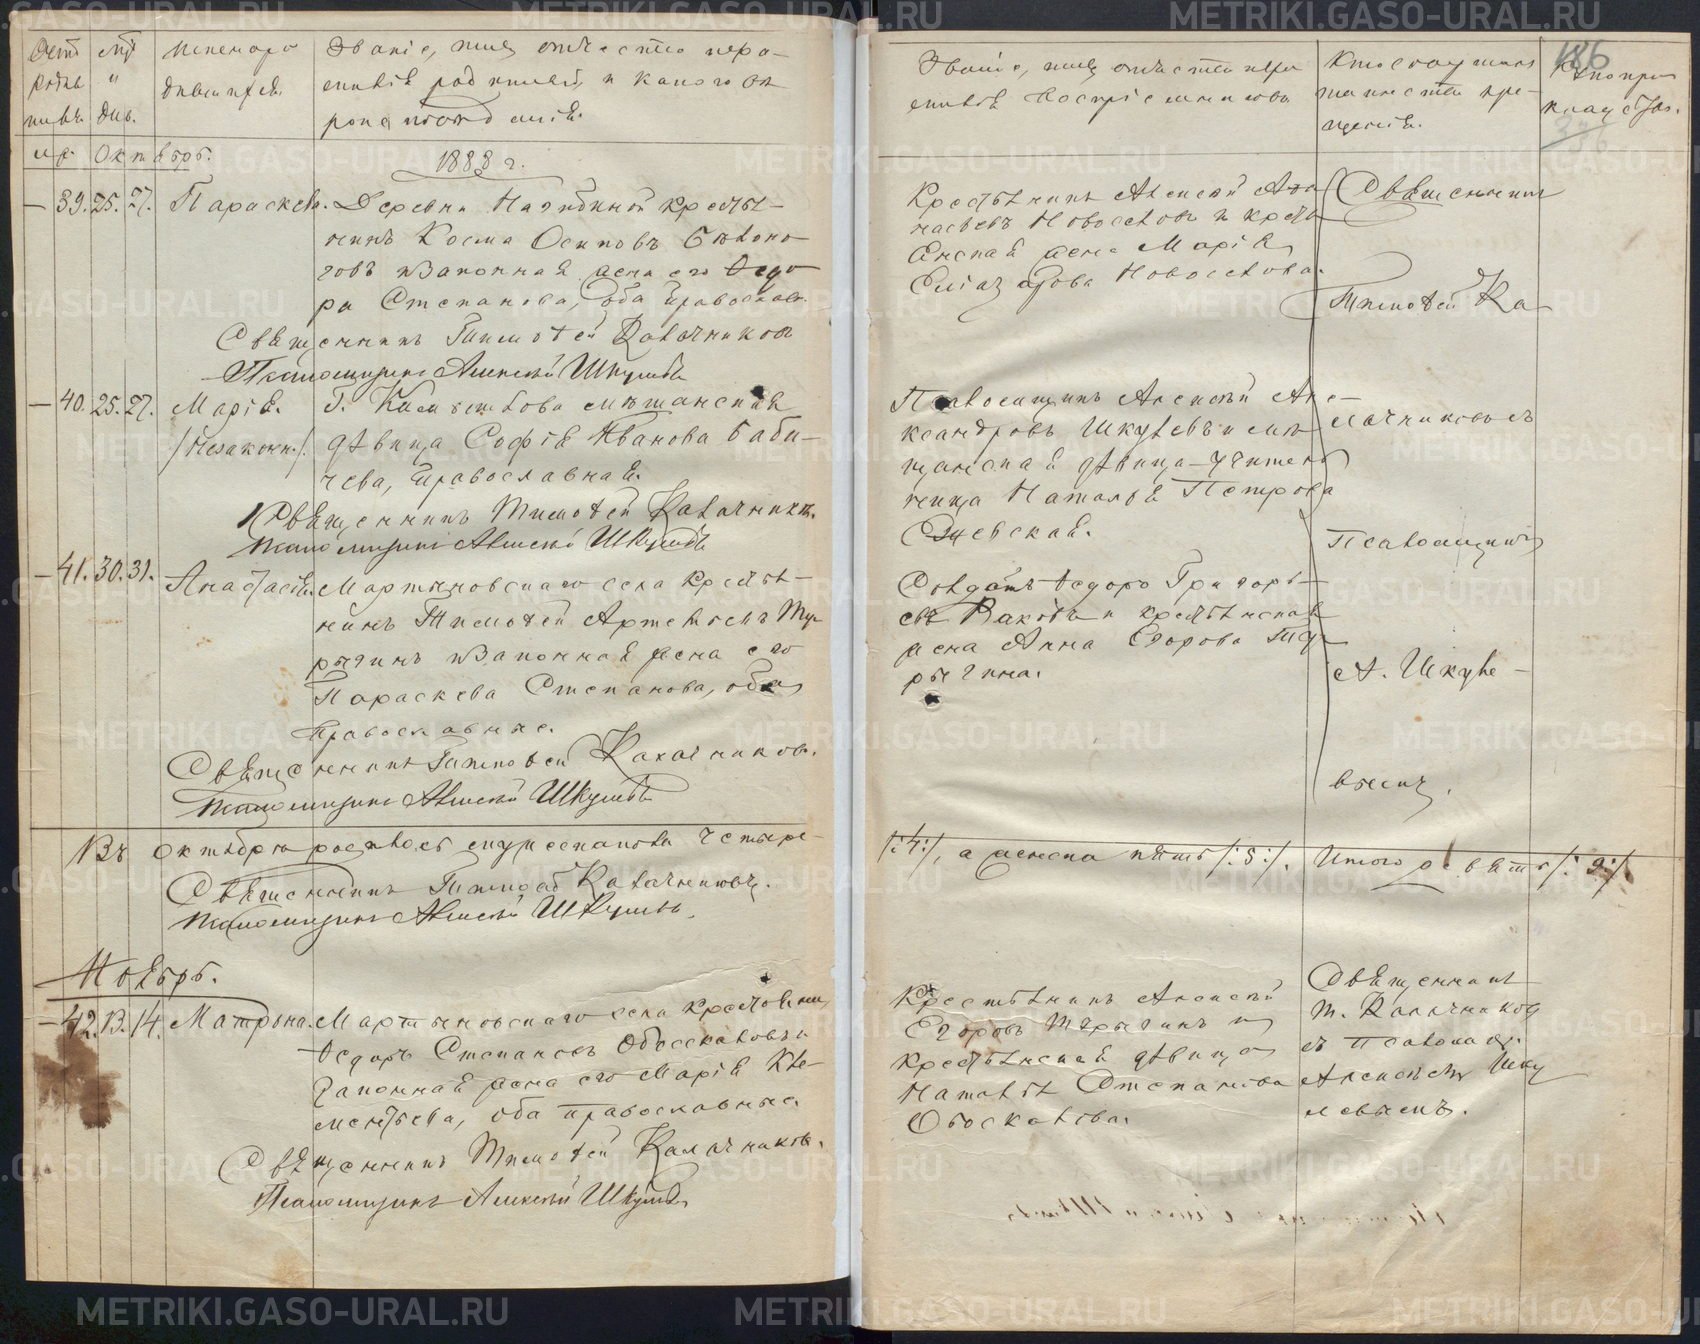 Мѣс. и дн.
Имена родившихся.
Званіе, имя, отчество и фа-
милія родителей, и какого вѣ-
роисповѣданія.
м. ж. Октябрь.
1888 г.
— 39. 25. 27. Параскева. Деревни Нагибиной крестья-
нинъ Косма Осиповъ Бѣлоно-
говъ и законная жена его Ѳедо-
ра Степанова, оба православн.
Священникъ Тимоѳей Калачниковъ
Псаломщикъ Алексѣй Шкулевъ
— 40. 25. 27. Марія. Г. Камышлова мѣщанская
/Незаконн./ дѣвица Софія Иванова Баби-
чева, православная.
Священникъ Тимоѳей Калачников.
Псаломщикъ Алексѣй Шкулевъ
— 41. 30. 31. Анастасія. Мартыновскаго села крестья-
нинъ Тимоѳей Артемьевъ Ту-
рыгинъ и законная жена его
Параскева Степанова, оба
православные.
Священникъ Тимоѳей Калачников.
Псаломщикъ Алексѣй Шкулевъ
Въ октябрѣ родилось мужескаго пола четыре
Священникъ Тимоѳей Калачниковъ.
Псаломщикъ Алексѣй Шкулевъ.
Ноябрь.
— 42. 13. 14. Матрона. Мартыновскаго села крестьянин
Ѳедоръ Степановъ Обоскаловъ и
законная жена его Марія Кле-
ментьева, оба православные.
Священникъ Тимоѳей Калачников.
Псаломщикъ Алексѣй Шкулевъ
186
Званіе, имя, отчество и фа-
милія воспріемниковъ
Кто совершал
таинство кре-
щенія.
Крестьянинъ Алексѣй Аѳа-
насьевъ Новоселовъ и кресть-
янская жена Марія
Елеазарова Новоселова.
Священник
Тимоѳей Ка-
Псаломщикъ Алексѣй Але-
ксандровъ Шкулевъ и мѣ-
щанская дѣвица — учитель-
ница Наталья Петрова
лачниковъ съ
Псаломщикомъ
Солдатъ Ѳедоръ Григорь-
евъ и крестьянская
жена Анна Егорова Ту-
рыгина.
А. Шкуле-
вымъ.
/:4:/, а женска пять /:5:/. Итого девять /:9:/
Крестьянинъ Алексѣй
Егоровъ Турыгинъ и
крестьянская дѣвица
Наталья Степанова
Обоскалова.
Священникъ
Т. Калачников
съ псаломщ.
Алексѣемъ Шку
левымъ.
METRIKI.GASO-URAL.RU